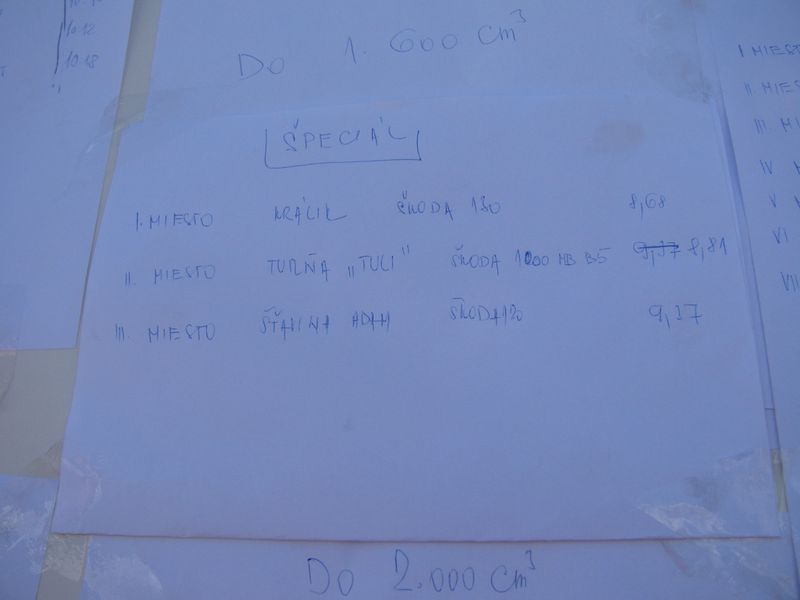 10:12
10:18
DO 1.600 cm³
ŠPECIÁL
I. MIESTO KRÁLIK ŠKODA 130 8,68
II. MIESTO TURŇA „TULI" ŠKODA 1000 MB B5 9,37 8,81
III. MIESTO ADAM ŠKODA 120 9,37
DO 2.000 cm³
I MIESTO
II. MIES
III. MI
IV
V
VI
VII